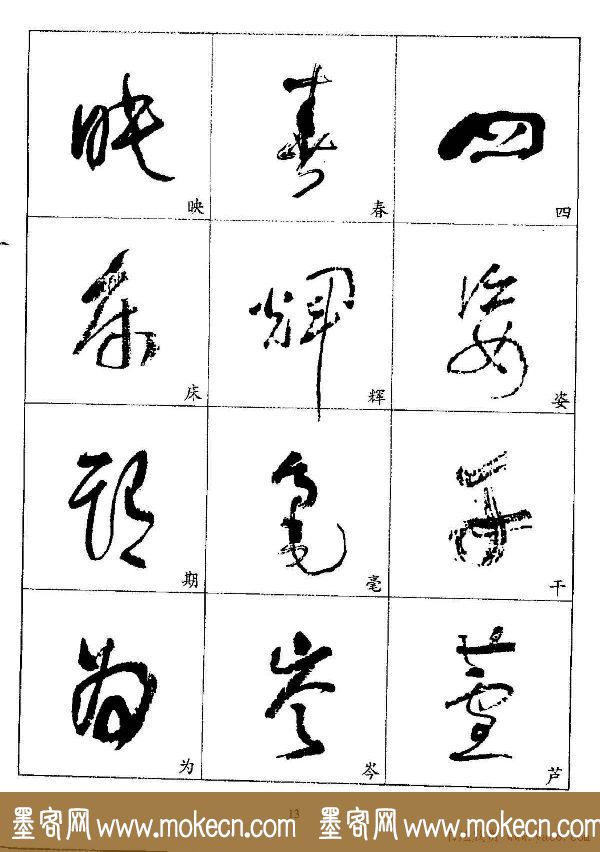 四
春
映
姿
辉
床
干
毫
期
芦
岑
为
13
墨客网 www.mokecn.com 墨客网 www.mokecn.com